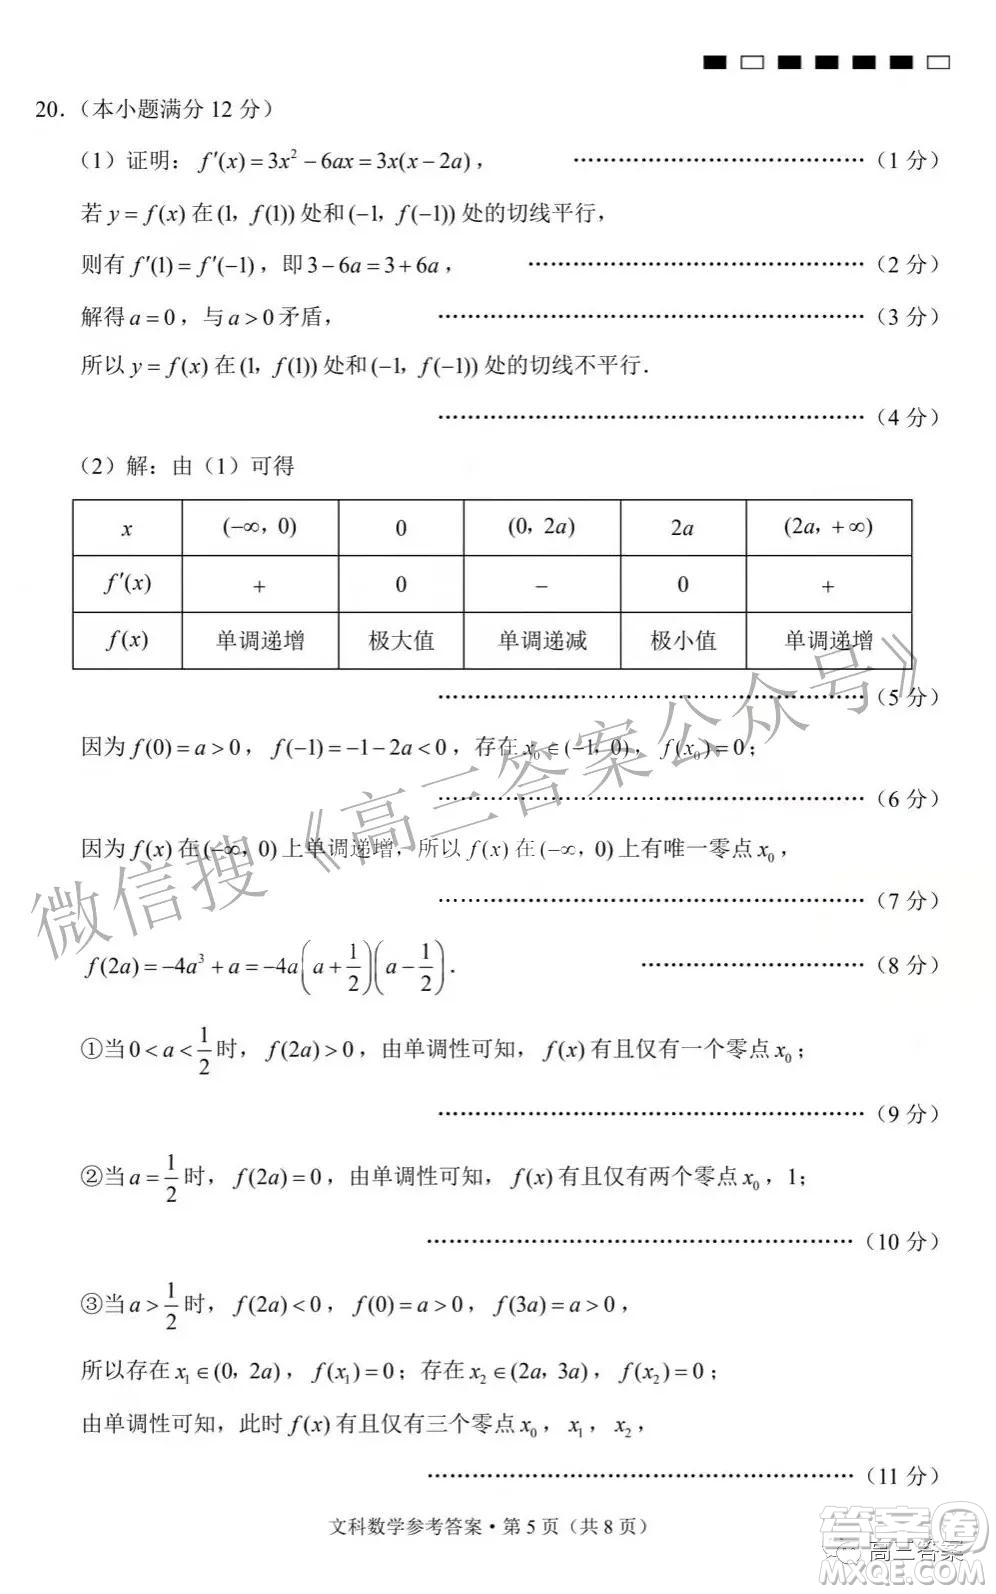 20.（本小题满分 12 分）
（1）证明：f′(x)=3x²−6ax=3x(x−2a)， ……………………………………（1 分）
若 y=f(x) 在 (1，f(1)) 处和 (−1，f(−1)) 处的切线平行，
则有 f′(1)=f′(−1)，即 3−6a=3+6a， ……………………………………（2 分）
解得 a=0，与 a>0 矛盾， ……………………………………（3 分）
所以 y=f(x) 在 (1，f(1)) 处和 (−1，f(−1)) 处的切线不平行．
……………………………………（4 分）
（2）解：由（1）可得
x (−∞，0) 0 (0，2a) 2a (2a，+∞)
f′(x) + 0 − 0 +
f(x) 单调递增 极大值 单调递减 极小值 单调递增
……………………………………（5 分）
因为 f(0)=a>0，f(−1)=−1−2a<0，存在 x₀∈(−1，0)，f(x₀)=0；
……………………………………（6 分）
因为 f(x) 在 (−∞，0) 上单调递增，所以 f(x) 在 (−∞，0) 上有唯一零点 x₀，
……………………………………（7 分）
f(2a)=−4a³+a=−4a(a+1/2)(a−1/2)． ……………………………………（8 分）
①当 0<a<1/2 时，f(2a)>0，由单调性可知，f(x) 有且仅有一个零点 x₀；
……………………………………（9 分）
②当 a=1/2 时，f(2a)=0，由单调性可知，f(x) 有且仅有两个零点 x₀，1；
……………………………………（10 分）
③当 a>1/2 时，f(2a)<0，f(0)=a>0，f(3a)=a>0，
所以存在 x₁∈(0，2a)，f(x₁)=0；存在 x₂∈(2a，3a)，f(x₂)=0；
由单调性可知，此时 f(x) 有且仅有三个零点 x₀，x₁，x₂，
……………………………………（11 分）
文科数学参考答案·第 5 页（共 8 页）
微信搜《高三答案公众号》
答案卷
高三答案
MXQE.COM